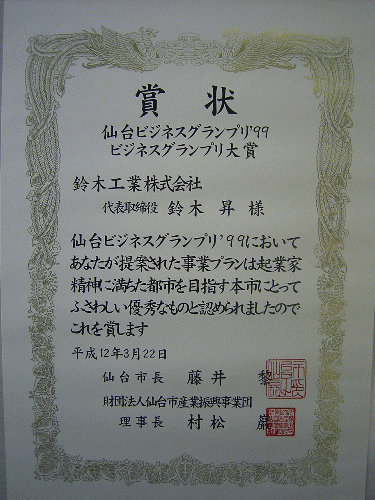 賞状
仙台ビジネスグランプリ'99
ビジネスグランプリ大賞
鈴木工業株式会社
代表取締役 鈴木 昇 様
仙台ビジネスグランプリ'99において
あなたが提案された事業プランは起業家
精神に満ちた都市を目指す本市にとって
ふさわしい優秀なものと認められましたので
これを賞します
平成12年3月22日
仙台市長 藤井 黎
財団法人仙台市産業振興事業団
理事長 村松 巖